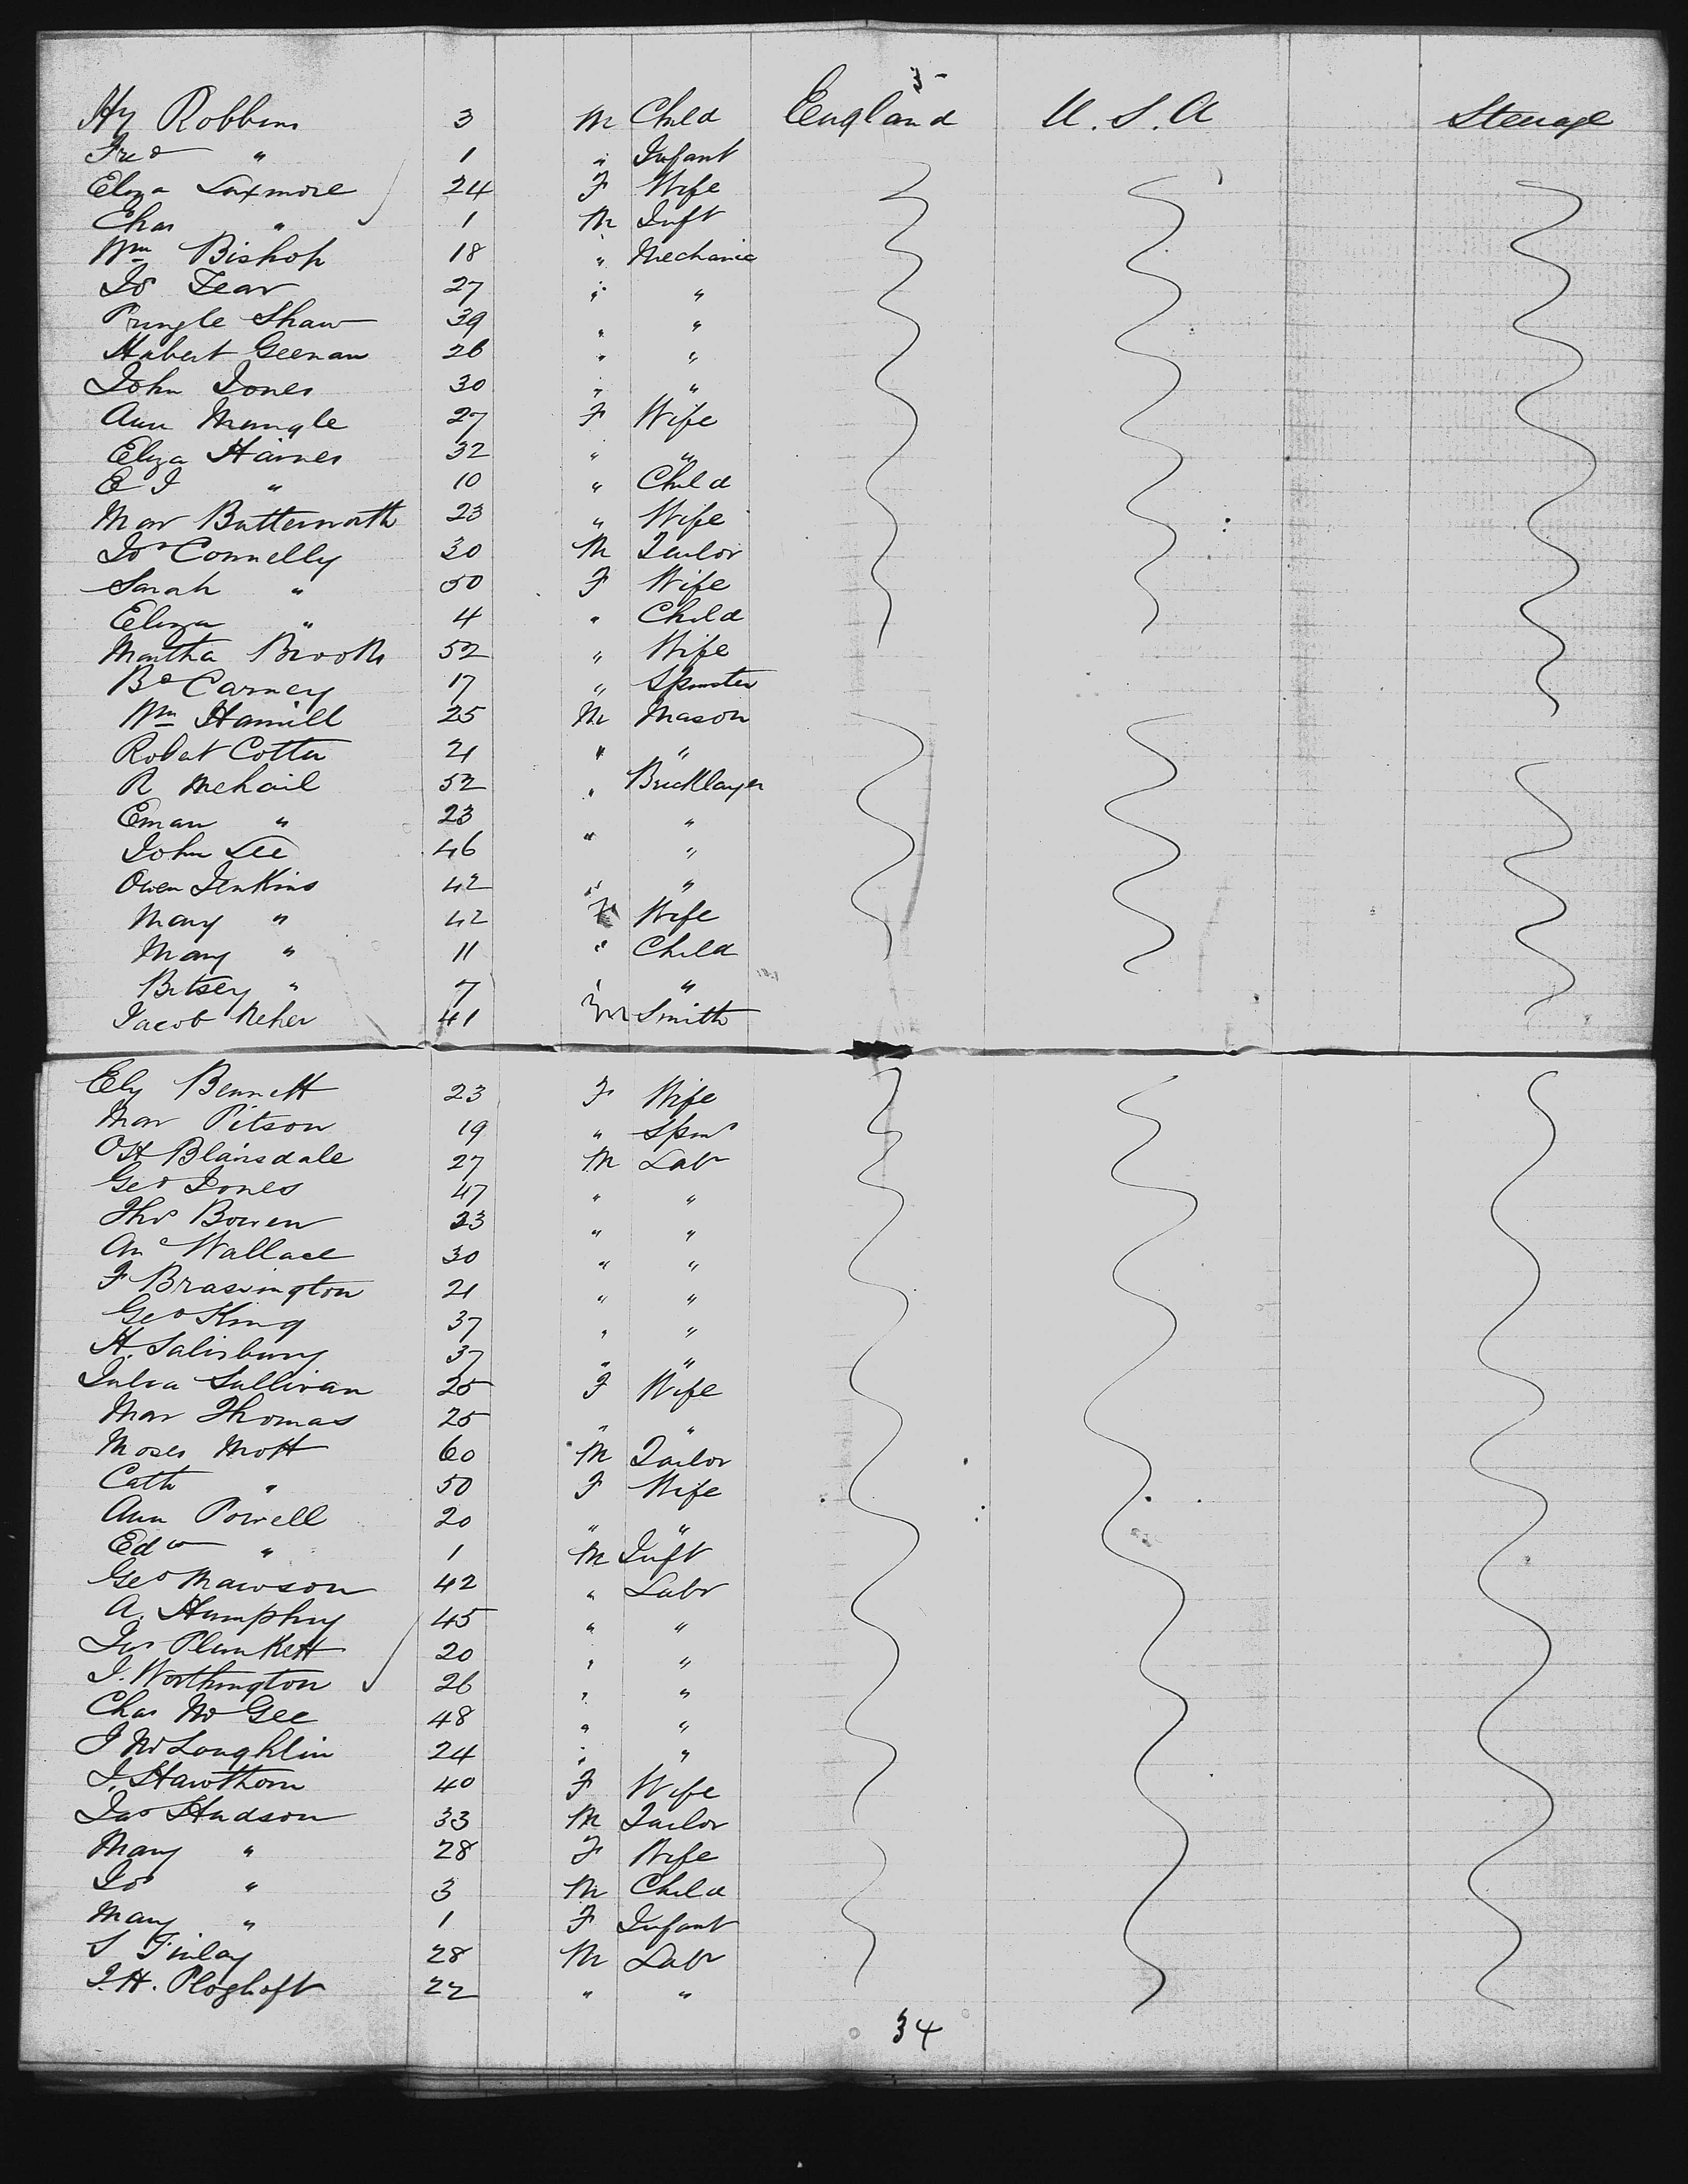 5
Hy Robbins 3 M Child England U.S.A Steerage
Fred " 1 " Infant
Eliza Luxmore 24 F Wife
Chas " 1 M Inft
Wm Bishop 18 " Mechanic
Jos Fear 27 " "
Pringle Shaw 39 " "
Hubert Geenan 26 " "
John Jones 30 " "
Ann Mungle 27 F Wife
Eliza Haines 32 " "
E J " 10 " Child
Mar Butterworth 23 " Wife
Jos Connelly 30 M Tailor
Sarah " 50 F Wife
Eliza " 4 " Child
Martha Brooks 52 " Wife
Bt Carney 17 " Spinster
Wm Hamill 25 M Mason
Robert Cotter 21 " "
R Mchail 52 " Bricklayer
Eman " 23 " "
John Lee 46 "
Owen Jenkins 42 " "
Mary " 42 F Wife
Mary " 11 " Child
Betsey " 7 " "
Jacob Neher 41 M Smith
Ely Bennett 23 F Wife
Mar Pitson 19 " Spinr
OH Blaisdale 27 M Labr
Geo Jones 47 " "
Thos Bowen 23 " "
An Wallace 30 " "
F Brasington 21 " "
Geo King 37 " "
H. Salisbury 37 " "
Julia Sullivan 25 F Wife
Mar Thomas 25 " "
Moses Mott 60 M Tailor
Cath " 50 F Wife
Ann Powell 20 " "
Edw " 1 M Inft
Geo Mawson 42 " Labr
A. Humphry 45 " "
Jas Plunkett 20 " "
J. Worthington 26 " "
Chas McGee 48 " "
J McLoughlin 24 " "
J. Hawthorn 40 F Wife
Jas Hudson 33 M Tailor
Mary " 28 F Wife
Jos " 3 M Child
Mary " 1 F Infant
S Finlay 28 M Labr
J.H. Ploghoft 22 " "
34